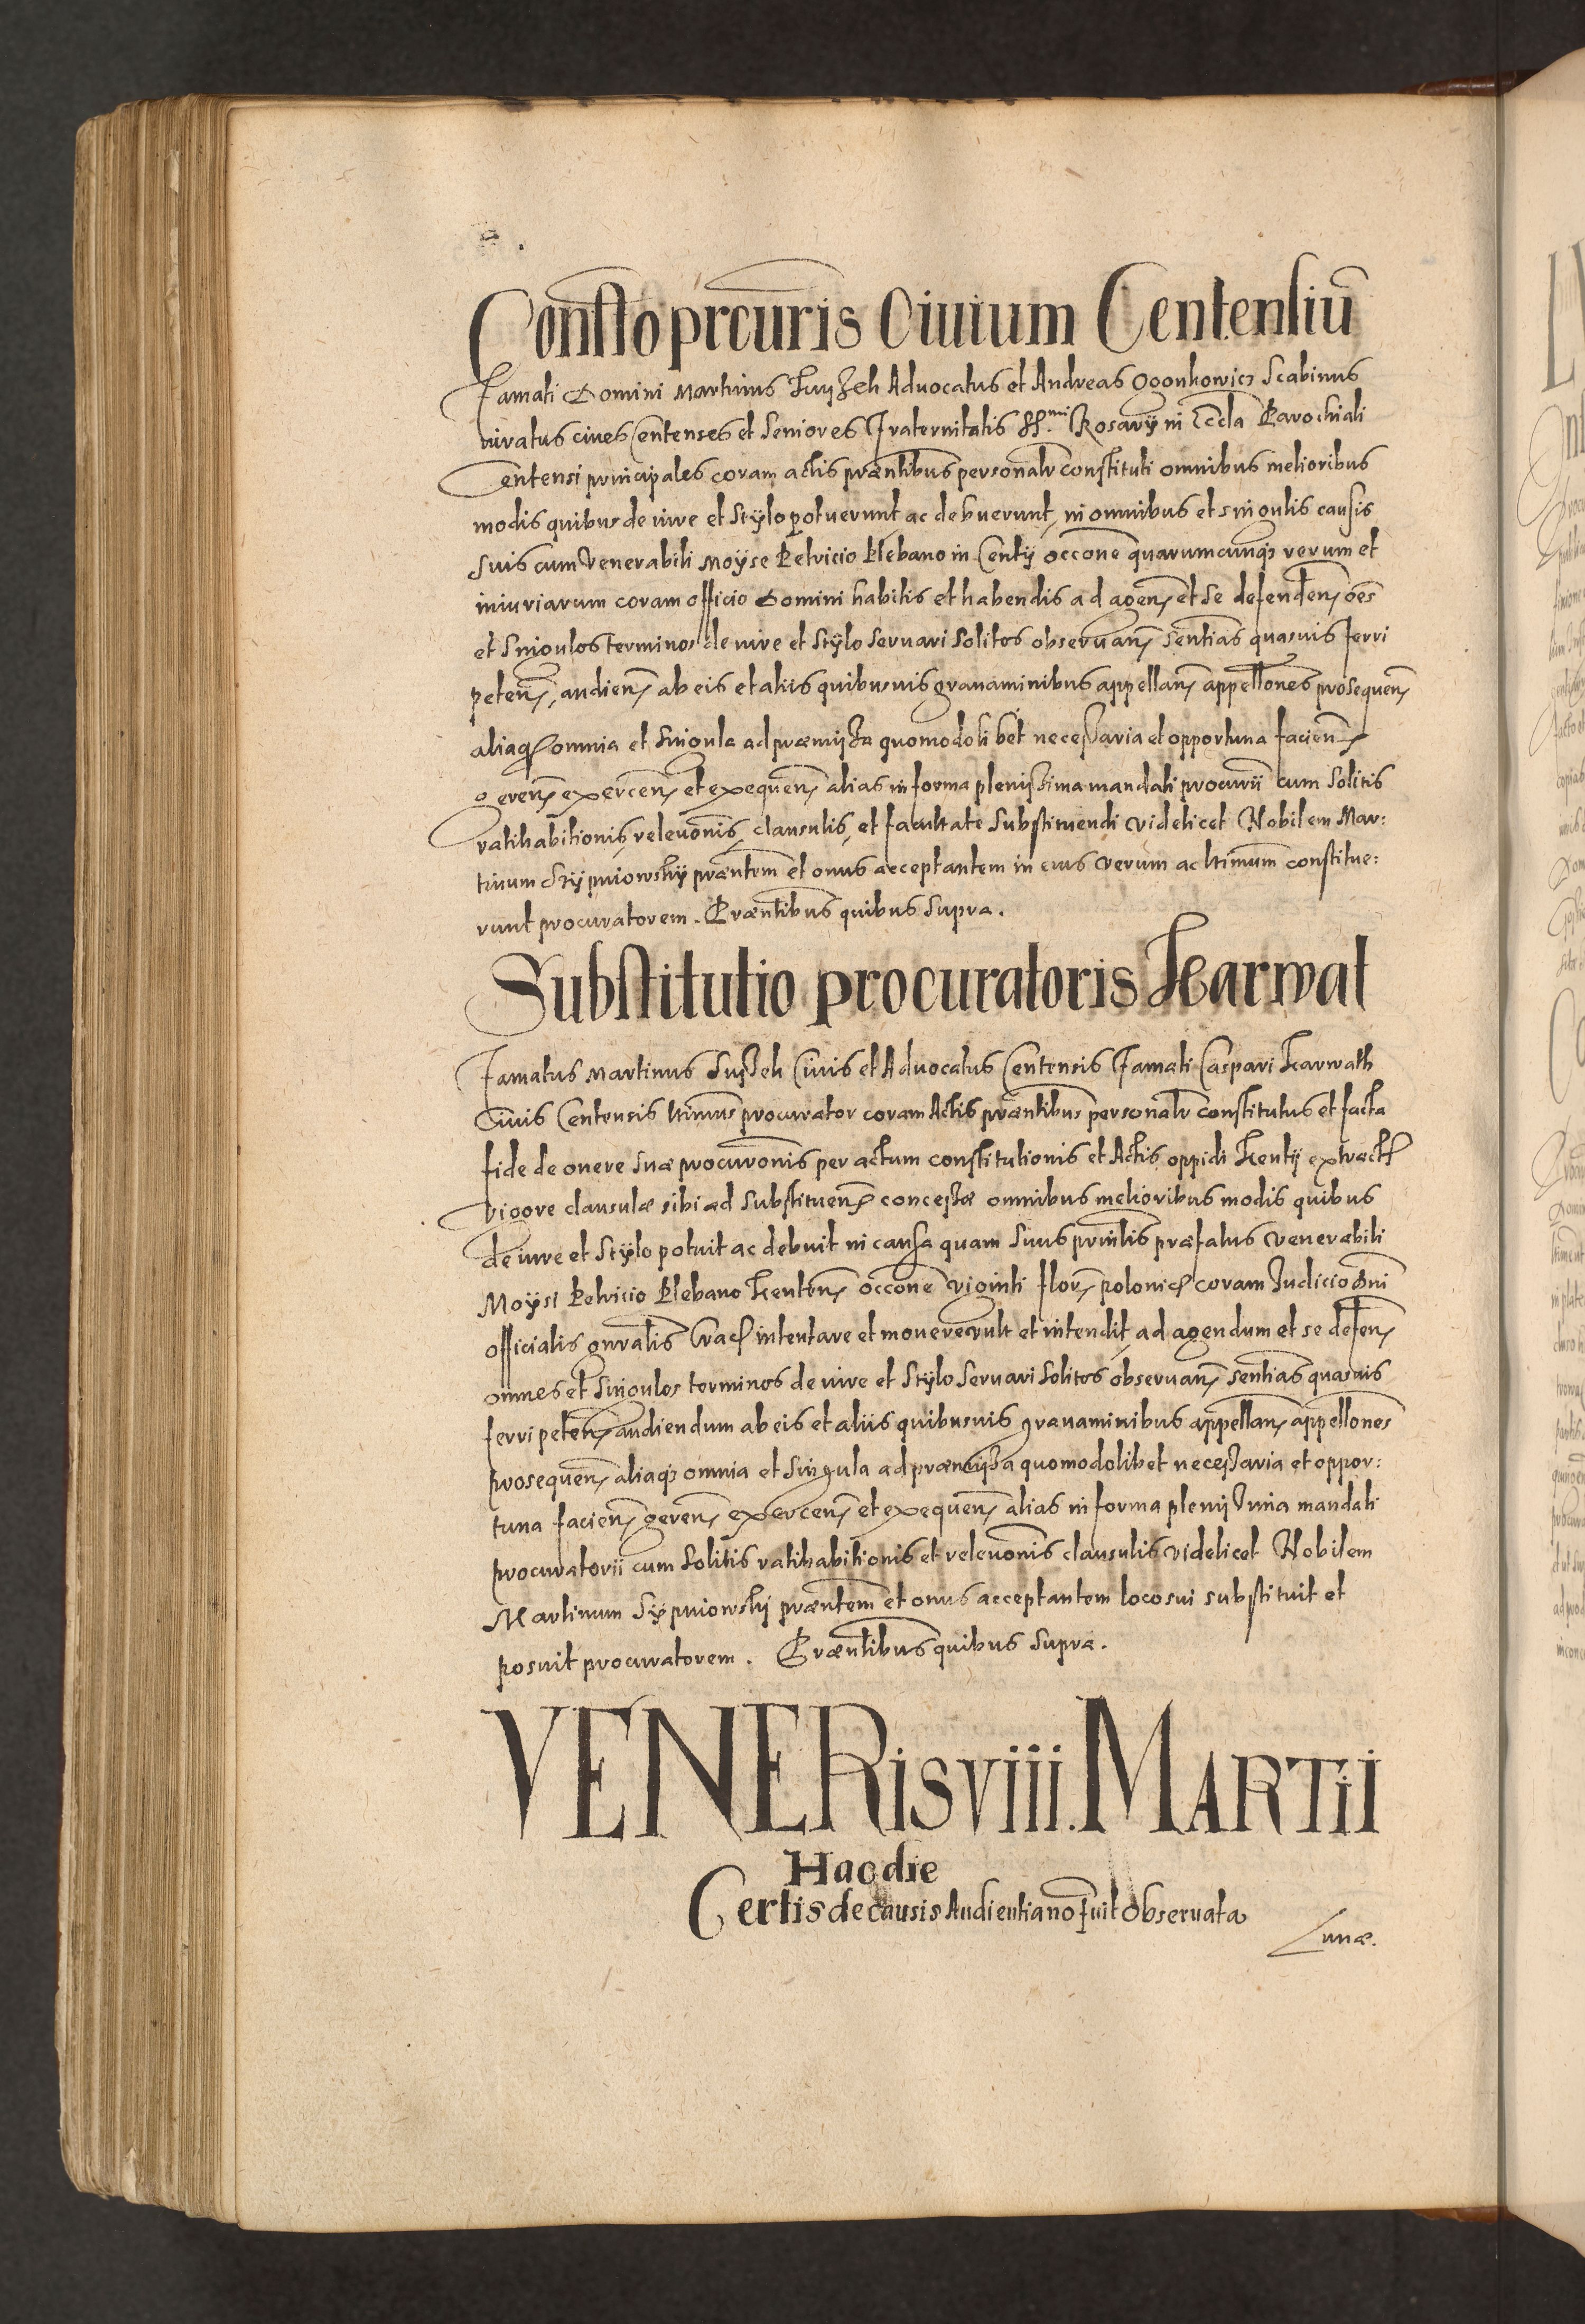 Constō prcuris Ciuium Centensiū
Famati Domini Martinus Luyzek Aduocatus et Andreas Ogonkowicz Scabinus
iuratus ciues Centenses et Seniores Fraternitatis SS.mi Rosarÿ in Eccla Parochiali
Centensi principales coram actis præntibus personalr constituti omnibus melioribus
modis quibus de iure et stÿlo potuerunt ac debuerunt, in omnibus et singulis causis
suis cum Venerabili Moÿse Petricio Plebano in Centÿ occone quarumcunqʒ rerum et
iniuriarum coram officio Domini habitis et habendis ad agenʒ et se defendenʒ oes
et Singulos terminos de iure et Stÿlo Seruari Solitos obseruanʒ sentias quasuis ferri
petenʒ, audienʒ ab eis et aliis quibusuis grauaminibus appellanʒ appellones prosequenʒ
aliaqʒ omnia et singula ad præmissa quomodolibet necessaria et opportuna facienʒ
gerenʒ exercenʒ et exequenʒ alias in forma plenissima mandati procurii cum Solitis
ratihabitionis, releuonis, clausulis, et facultate Substituendi videlicet Nobilem Mar:
tinum Sÿpniowskÿ præntem et onus acceptantem in eius verum ac ltimum constitue:
runt procuratorem. Præntibus quibus Supra.
Substitutio procuratoris Karwat
Famatus Martinus Luszek Ciuis et Aduocatus Centensis Famati Caspari Karwath
Ciuis Centensis ltimus procurator coram Actis præntibus personalr constitutus et facta
fide de onere suæ procuronis per actum constitutionis et Actis oppidi Kentÿ extract
vigore clausulæ sibi ad Substituenʒ concessæ omnibus melioribus modis quibus
de iure et Stÿlo potuit ac debuit in causa quam Suus prinlis præfatus Venerabili
Moÿsi Petricio Plebano Kentenʒ occone viginti florʒ polonicʒ coram Judicio Dni
officialis gnralis Cracʒ intentare et mouere vult et intendit, ad agendum et se defenʒ
omnes et Singulos terminos de iure et Stÿlo Seruari Solitos obseruanʒ sentias quasuis
ferri petenʒ audiendum ab eis et aliis quibusuis grauaminibus appellanʒ appellones
prosequenʒ aliaqʒ omnia et Singula ad præmissa quomodolibet necessaria et oppor:
tuna facienʒ gerenʒ exercenʒ et exequenʒ alias in forma plenissima mandati
procuratorii cum Solitis ratihabitionis et releuonis clausulis videlicet Nobilem
Martinum Sÿpniowskÿ præntem et onus acceptantem loco sui substituit et
posuit procuratorem. Præntibus quibus Supra.
VENERis viii. MARTii
Hac die
Certis de causis Audientia nō fuit obseruata
Lunæ.